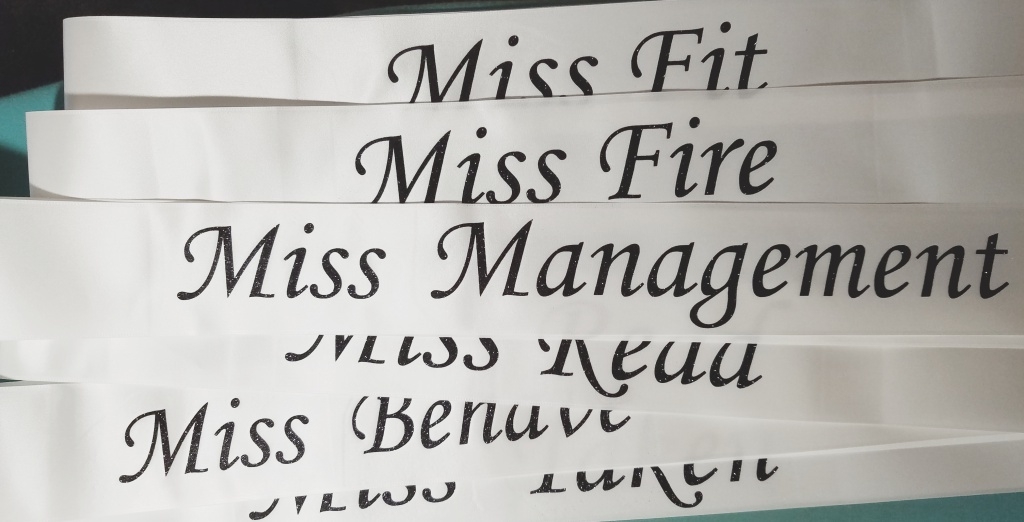 Miss Fit
Miss Fire
Miss Management
Miss Read
Miss Behave
Miss Taken